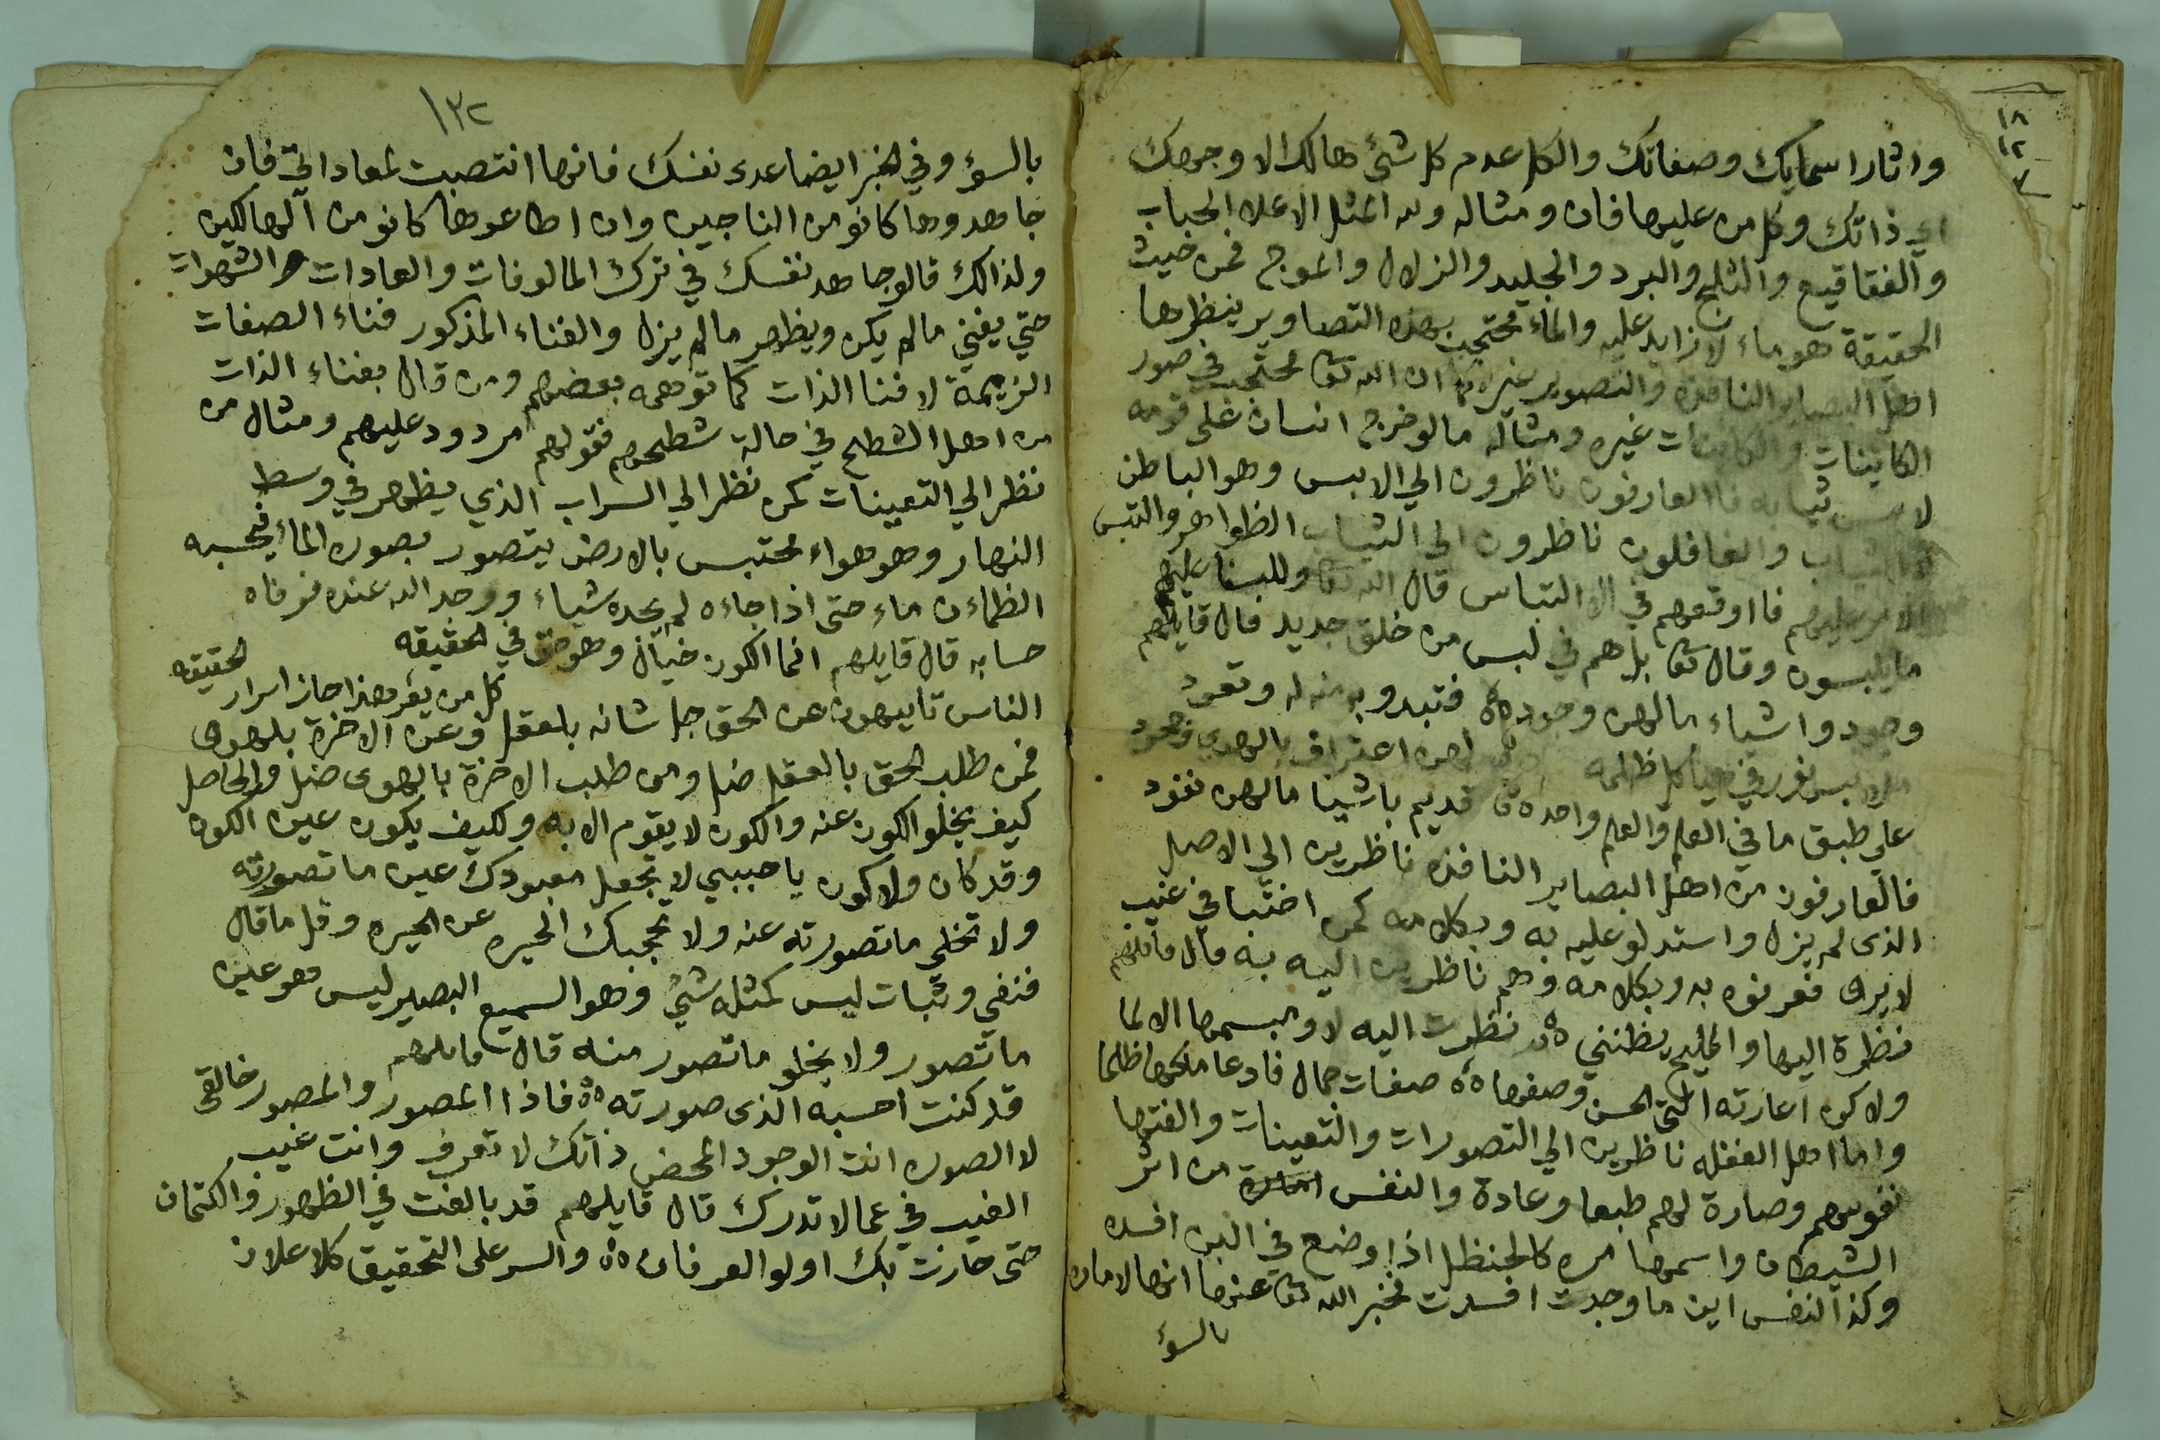 ١٨
١٢
٧
واثار اسمايك وصفاتك والكل عدم كل شئ هالك الا وجهك
اي ذاتك وكل من عليها فان ومثاله ولله المثل الاعلا الحباب
والفقاقيع والثلج والبرد والجليد والزلال والموج فمن حيث
الحقيقة هو ماء لا زايد عليه والماء محتجب بهذه التصاوير ينظرها
اهل البصاير النافذه والتصوير غيره ان الله تعا محتجب في صور
الكاينات والكاينات غيره ومثاله ما لو خرج انسان على قومه
لابس ثيابه فاالعارفون ناظرون الي الابس وهو الباطن
الثياب والغافلون ناظرون الي الثياب الظواهر والتبس
الامر عليهم فا اوقعهم في الالتباس قال الله تعا وللبسنا عليهم
ما يلبسون وقال تعا بل هم في لبس من خلق جديد قال قايلهم
وجود واشياء مالهن وجوده فتبدو به منه له وتعود
ملابس نور في هياكل ظلمه لهن اعتراف بالهدي وجحود
علي طبق ما في العلم والعلم واحده قديم باشيا مالهن نفود
فالعارفون من اهل البصاير النافذه ناظرين الي الاصل
الذى لم يزل واستدلو عليه به وبكلامه كمن اختبا في غيب
لا يرى فعرفوه به وبكلامه وهم ناظرين اليه به قال قايلهم
نظرة اليها والمليح يظنني نظرت اليه لا ومبسمها الالما
ولاكن اعارته التي الحسن وصفها صفات جمال فادعا ملكها ظلما
واما اهل الغفله ناظرين الي التصورات والتعينات والفتها
نفوسهم وصارة لهم طبعا وعادة والنفس من اثر
الشيطان واسمها مره كالحنظل اذا وضع في اللبن افسده
وكذا النفس اين ما وجدت افسدت فخبر الله تعا عنها انها لاماره
بالسؤ
١٣٢
بالسؤ وفي الخبر ايضا عدى نفسك فانها انتصبت لمعاداتي فان
جاهدوها كانو من الناجين وان اطاعوها كانو من آلهالكين
ولذالك قالو جاهد نفسك في ترك المالوفات والعادات والشهوات
حتي يفني مالم يكن ويظهر مالم يزل والفناء المذكور فناء الصفات
الذميمة لا فنا الذات كما توهمه بعضهم ومن قال بفناء الذات
من اهل الشطح في حالة شطحهم فقولهم مردود عليهم ومثال من
نظر الي التعينات كمن نظر الي السراب الذي يظهر في وسط
النهار وهو هواء محتبس بالارض يتصور بصورة الماء فيحسبه
الظماءن ماء حتى اذا جاءه لم يجده شياء ووجد الله عنده فوفاه
حسابه قال قايلهم انما الكون خيال وهو حق في الحقيقه
كل من يقر هذا حاز اسرار الحقيقه
الناس تاييهون عن الحق جل شانه بلعقل وعن الاخرة بلهوى
فمن طلب الحق بالعقل ضل ومن طلب الاخرة بالهوى ضل والحاصل
كيف يخلو الكون عنه والكون لا يقوم الا به وكيف يكون عين الكون
وقد كان ولا كون يا حبيبي لا تجعل معبودك عين ما تصورته
ولا تخلي ما تصورته عنه ولا تحجبك الحيره عن الحيره وقل ما قال
فنفي وثبات ليس كمثله شئ وهو السميع البصير ليس هو عين
ما تصور ولا يخلو ما تصور منه قال قايلهم
قد كنت احسبه الذى صورته فاذا المصور والمصور خالقي
لا الصوره انت الوجود المحض ذاتك لا تعرف وانت غيب
الغيب في عما لا تدرك قال قايلهم قد بالغت في الظهور والكتمان
حتى حارت بك اولو العرفان والسر على التحقيق كلاعلان